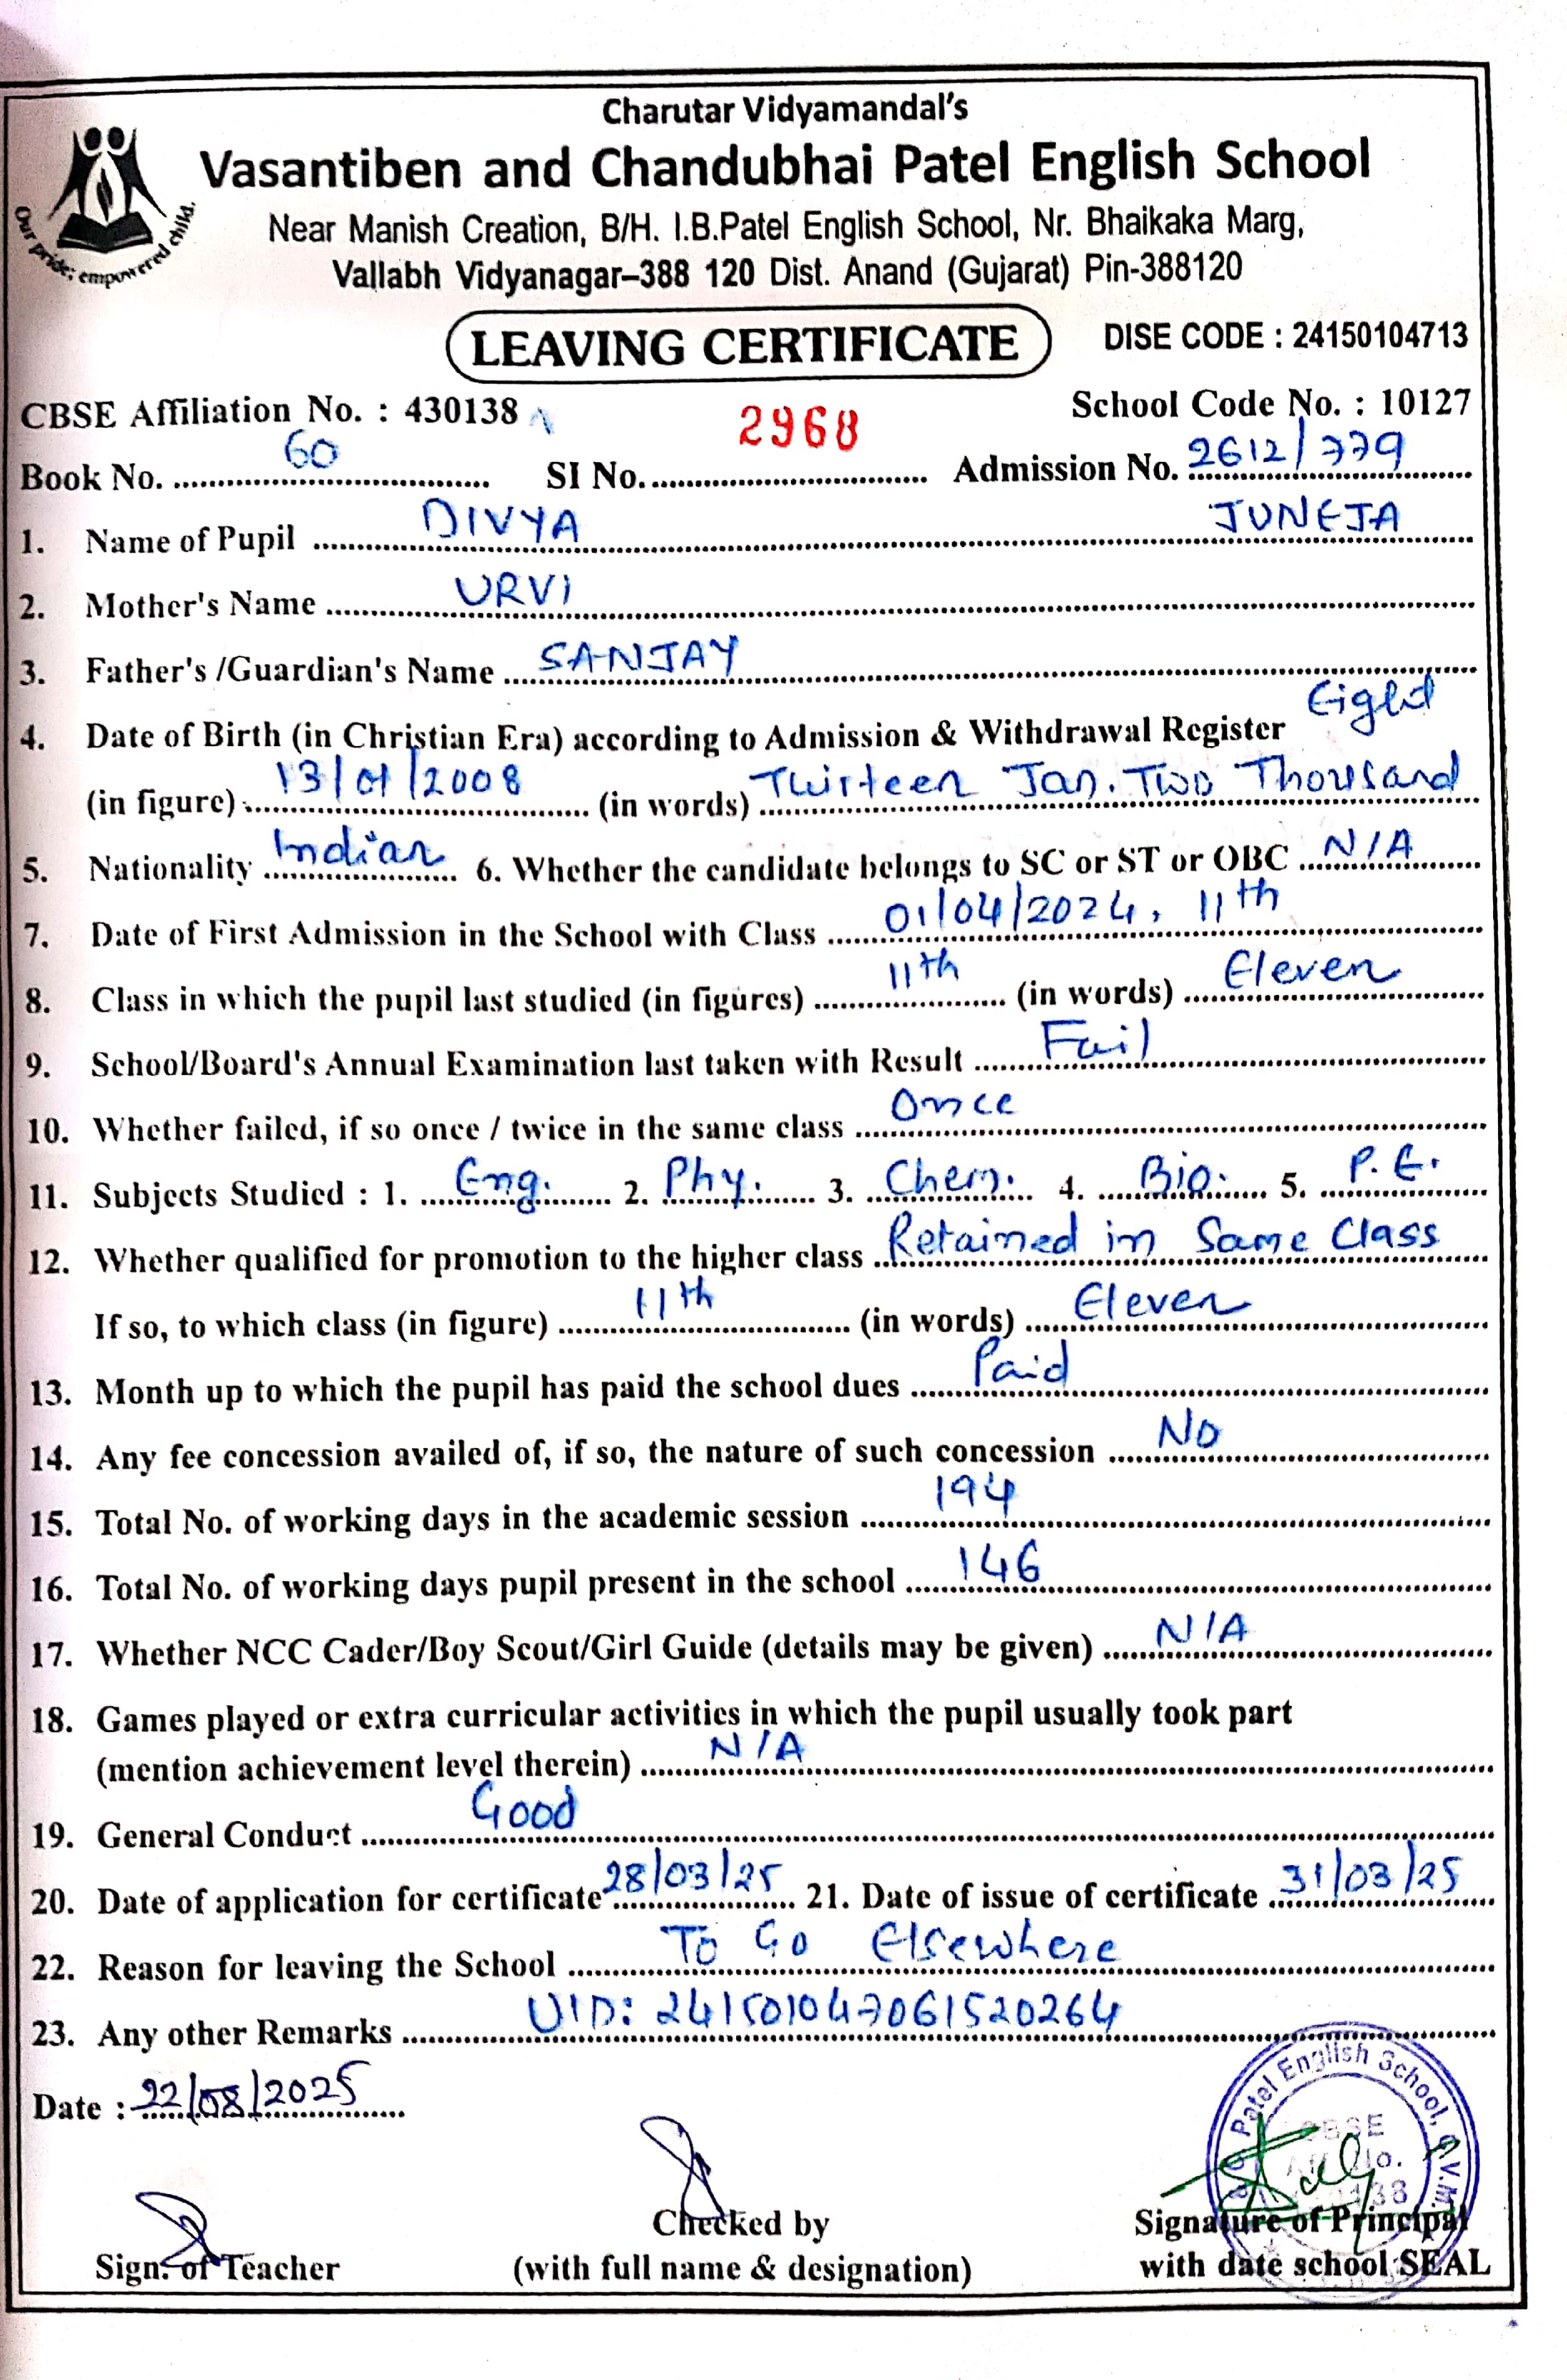 Charutar Vidyamandal's
Vasantiben and Chandubhai Patel English School
Near Manish Creation, B/H. I.B.Patel English School, Nr. Bhaikaka Marg,
Vallabh Vidyanagar–388 120 Dist. Anand (Gujarat) Pin-388120
Our pride; empowered child.
LEAVING CERTIFICATE DISE CODE : 24150104713
CBSE Affiliation No. : 430138 School Code No. : 10127
Book No. 60 SI No. 2968 Admission No. 2612/779
1. Name of Pupil DIVYA JUNEJA
2. Mother's Name URVI
3. Father's /Guardian's Name SANJAY
4. Date of Birth (in Christian Era) according to Admission & Withdrawal Register Eight
(in figure) 13/01/2008 (in words) Thirteen Jan. Two Thousand
5. Nationality Indian 6. Whether the candidate belongs to SC or ST or OBC N/A
7. Date of First Admission in the School with Class 01/04/2024, 11th
8. Class in which the pupil last studied (in figures) 11th (in words) Eleven
9. School/Board's Annual Examination last taken with Result Fail
10. Whether failed, if so once / twice in the same class Once
11. Subjects Studied : 1. Eng. 2. Phy. 3. Chem. 4. Bio. 5. P.E.
12. Whether qualified for promotion to the higher class Retained in Same Class
If so, to which class (in figure) 11th (in words) Eleven
13. Month up to which the pupil has paid the school dues Paid
14. Any fee concession availed of, if so, the nature of such concession No
15. Total No. of working days in the academic session 194
16. Total No. of working days pupil present in the school 146
17. Whether NCC Cader/Boy Scout/Girl Guide (details may be given) N/A
18. Games played or extra curricular activities in which the pupil usually took part
(mention achievement level therein) N/A
19. General Conduct Good
20. Date of application for certificate 28/03/25 21. Date of issue of certificate 31/03/25
22. Reason for leaving the School To Go Elsewhere
23. Any other Remarks UID: 241501047061520264
Date : 22/08/2025
Patel English School, C.V.M.
CBSE
No.
Checked by Signature of Principal
Sign. of Teacher (with full name & designation) with date school SEAL